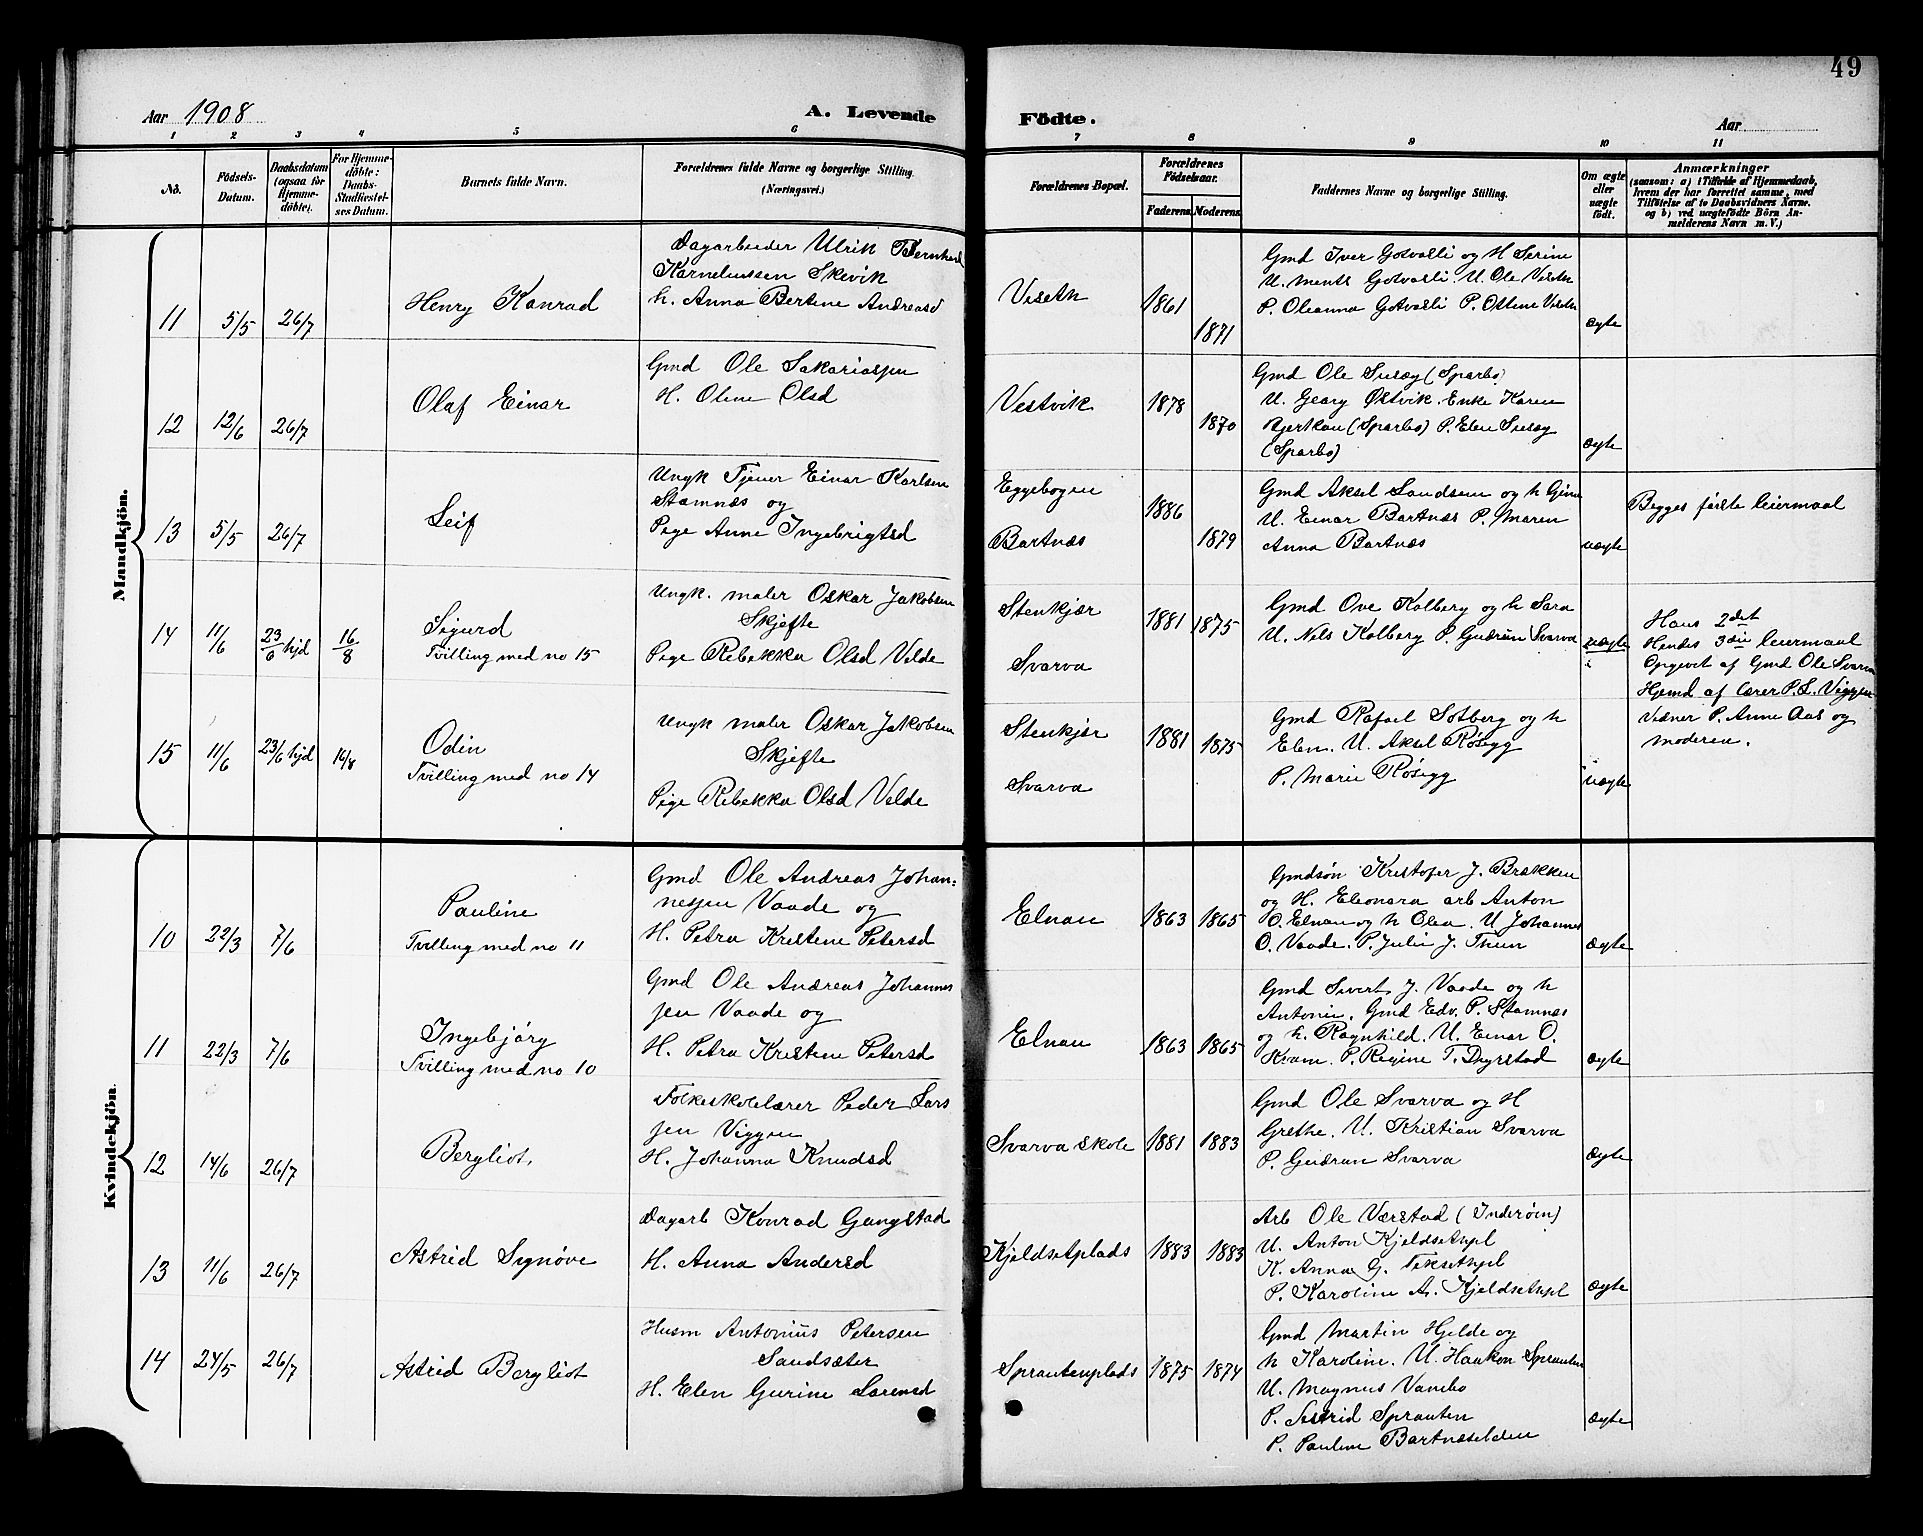 49
Aar 1908
A. Levende Födte.
Aar
1 2 3 4 5 6 7 8 9 10 11
No.
Födsels-Datum.
Daabsdatum (ogsaa for Hjemmedöbte).
For Hjemmedöbte: Daabs-Stadfæstelses Datum.
Barnets fulde Navn.
Forældrenes fulde Navne og borgerlige Stilling. (Næringsvei.)
Forældrenes Bopæl.
Forældrenes Födselsaar.
Faderens. Moderens.
Faddernes Navne og borgerlige Stilling.
Om ægte eller uægte födt.
Anmærkninger
(saasom: a) i Tilfælde af Hjemmedaab, hvem der har forrettet samme, med Tilföielse af to Daabsvidners Navne, og b) ved uægtefödte Börn Anmelderens Navn m. V.)
Mandkjön.
11 5/5 26/7
Henry Konrad
Dagarbeider Ulrik Bernhard
Korneliussen Skevik
h. Anna Bertine Andreasd
Viseth
1861 1871
Gmd Iver Gotvasli og H Serine
U. Ments Gotvasli. U. Ole Viseth
P. Oleanna Gotvasli P. Oline Viseth
ægte
12 12/6 26/7
Olaf Einar
Gmd Ole Sakariassen
H. Oline Olsd
Vestvik
1878 1870
Gmd Ole Susæg (Sparbo)
U. Georg Østvik. Enke Karen
Bjerkan (Sparbo) P. Elen Susæg
(Sparbo)
ægte
13 5/5 26/7
Leif
Ungk Tjener Einar Karlsen
Stamnæs og
Pige Anne Ingebrigtsd
Eggebogen
Bartnæs
1886 1879
Gmd Aksel Sandsem og h
U. Einar Bartnæs P. Maren
Anna Bartnæs
uægte
Begges første leiermaal
14 11/6 23/6 hjd 16/8
Sigurd
Tvilling med no 15
Ungk. maler Oskar Jakobsen
Skjefte
Pige Rebekka Olsd Velde
Stenkjær
Svarva
1881 1875
Gmd Ove Kolberg og h Sara
U. Nels Kolberg P. Gudrun Svarva
uægte
Hans 2det
Hendes 3die leiermaal
Opgivet af Gmd Ole Svarva
Hjemd af Lærer P. L. Viggen
Vidner P. Anne Aas og
moderen.
15 11/6 23/6 hjd 16/8
Odin
Tvilling med no 14
Ungk maler Oskar Jakobsen
Skjefte
Pige Rebekka Olsd Velde
Stenkjær
Svarva
1881 1875
Gmd Rafael Solberg og h
Elen. U. Aksel Røsegg
P. Marie Røsegg
uægte
Kvindekjön.
10 22/3 7/6
Pauline
Tvilling med no 11
Gmd Ole Andreas Johan=
nessen Vaade og
H. Petra Kristine Petersd
Elnan
1863 1865
Gmdsøn Kristofer J. Brækken
og H. Eleonora arb Anton
O. Elnan og h Olea. U Johannes
O. Vaade. P. Julie J. Thun
ægte
11 22/3 7/6
Ingebjørg
Tvilling med no 10
Gmd Ole Andreas Johannes
sen Vaade og
H. Petra Kristine Petersd
Elnan
1863 1865
Gmd Sivert J. Vaade og h
Antonie. Gmd Edv. P. Stamnæs
og h. Ragnhild. U. Einar O.
Kvam. P. Regine T. Dyrstad
ægte
12 14/6 26/7
Bergliot.
Folkeskolelærer Peder Lars
sen Viggen
H. Johanna Knudsd
Svarva skole
1881 1883
Gmd Ole Svarva og H
Grethe. U. Kristian Svarva
P. Gudrun Svarva
ægte
13 11/6 26/7
Astrid Synøve
Dagarb Konrad Gangstad
H. Anna Andersd
Kjeldsetplads
1883 1883
Arb Ole Værstad (Inderøen)
U. Anton Kjeldsethpl
K. Anna G. Teksethpl
P. Karoline A. Kjeldsethpl
ægte
14 24/5 26/7
Astrid Bergliot
Husm Antonius Petersen
Sandsæter
H. Elen Gurine Larensd
Sprautenplads
1875 1874
Gmd Martin Hjelde og
h Karoline. U. Haakon Sprauten
U. Magnus Vambo
P. Astrid Sprauten
P. Pauline Bartnæselden
ægte